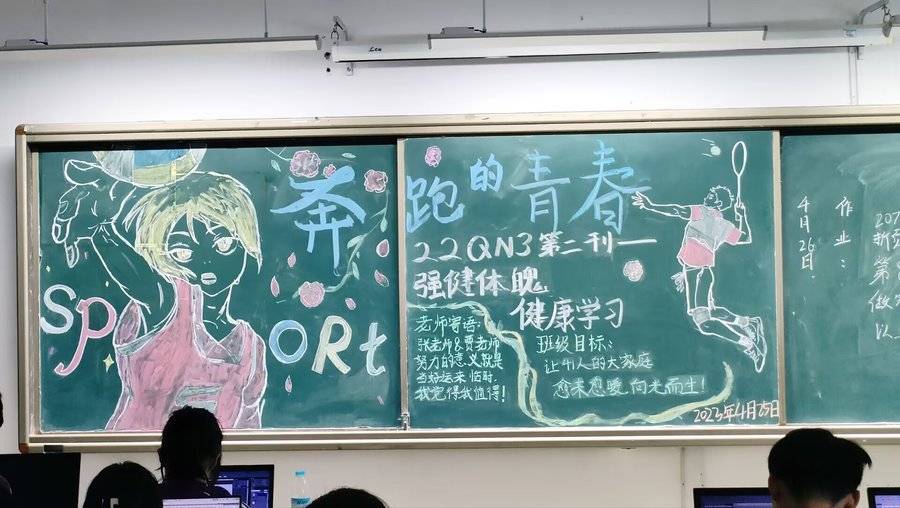 奔跑的青春
SpORt
22QN3第二刊一
强健体魄
健康学习
老师寄语:
张老师&贾老师
努力的意义就是
当好运来临时,
我觉得我值得!
班级目标:
让41人的大家庭
愈来愈暖,向光而生!
2023年4月25日
作业:
4月26日
207
第
做
以